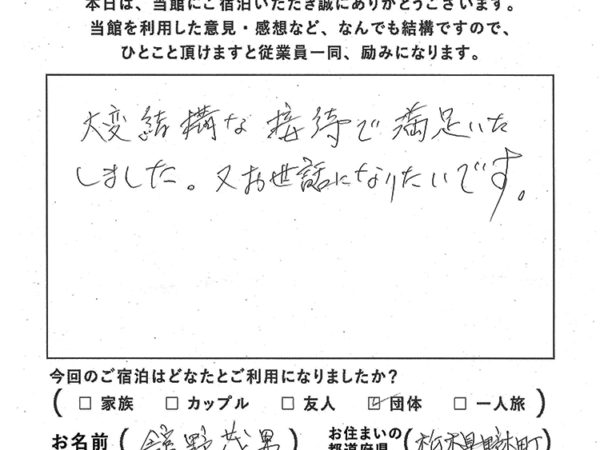 本日は、当館にご宿泊いただき誠にありがとうございます。
当館を利用した意見・感想など、なんでも結構ですので、
ひとこと頂けますと従業員一同、励みになります。
大変結構な接待で満足いた
しました。又お世話になりたいです。
今回のご宿泊はどなたとご利用になりましたか?
(□家族 □カップル □友人 ☑団体 □一人旅)
お名前 ( 野茂男 ) お住まいの都道府県 (栃木県野木町)